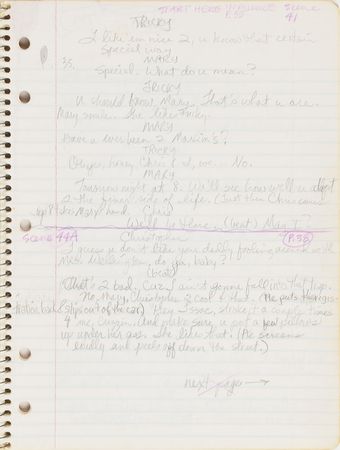 START HERE
Scene
41
TRICKY
I like em nice 2, u know that certain
special way
MARY
Special. What do u mean?
TRICKY
U should know Mary, That's what u are.
Mary smiles. She likes Tricky.
MARY
Have u ever been 2 Maxim's?
TRICKY
honey, Chris & I, we - No.
MARY
Tomorrow night at 8. We'll see how well u adapt
2 the finer side of life. (Just then Chris comes
Mary's hand Chris
(beat) Man I?
Scene 44A
Christopher
(P. 38)
I guess u don't like your daddy fooling around with
Mrs. Wellington, do ya, baby?
(beat)
That's 2 bad, Cuz I ain't gonna fall into that trap.
No, Mary, Christopher 2 cool 4 that. (He puts the
slips out of the car) Hey Isaac, stroke it a couple times
4 me, cuzzin, And make sure u put a few pillows
up under her ass. She likes that! (He screams
loudly and peels off down the street.)
next page →